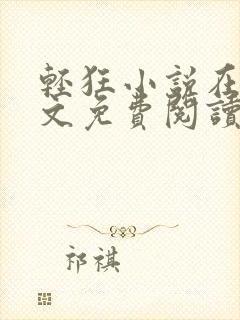 輕狂小說在
文免費閱讀
祁祺